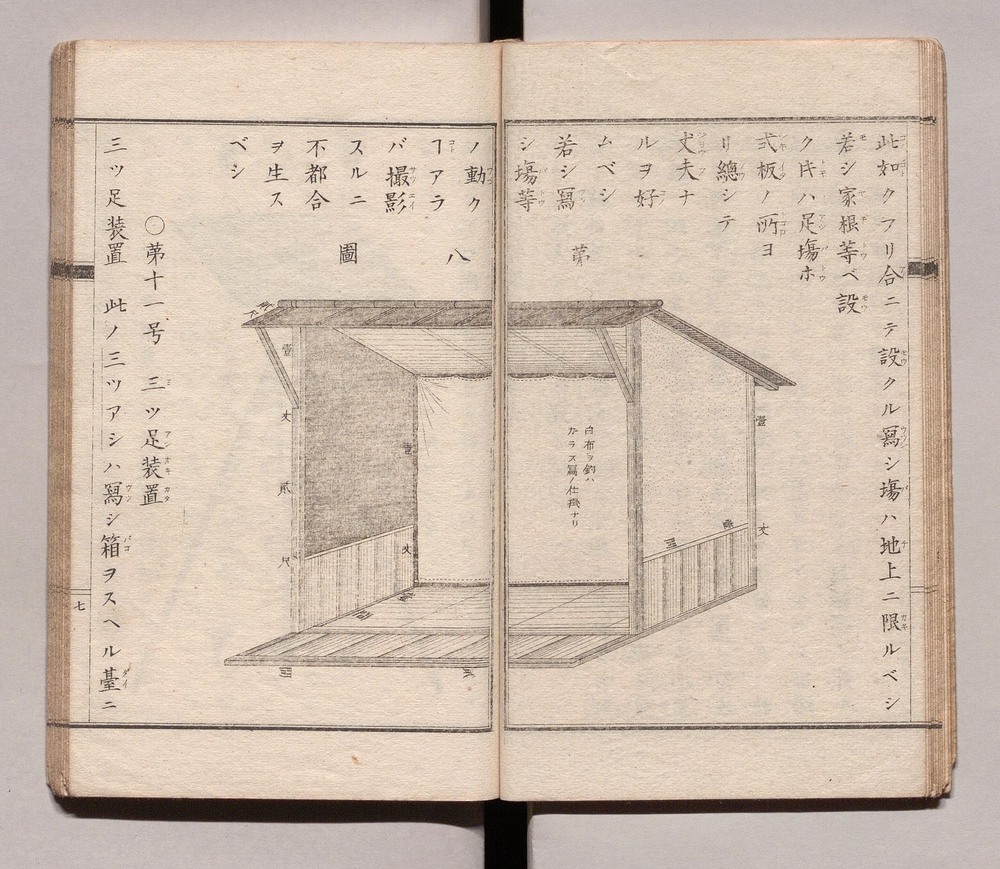 此如クフリ合ニテ設クル寫シ塲ハ地上ニ限ルベシ
若シ家根等ベ設
ク氏ハ足塲ホ
式板ノ所ヨ
リ總シテ
丈夫ナ
ルヲ好
ムベシ
若シ寫
シ塲等
ノ動ク
ヿアラ
バ撮影
スルニ
不都合
ヲ生ス
ベシ
第八圖
白布ヲ釣ハ
カラス寫ノ仕掛ナリ
壹丈
壹丈
壹丈貳尺
〇第十一号 三ツ足装置
三ツ足装置 此ノ三ツアシハ寫シ箱ヲスヘル臺ニ
七